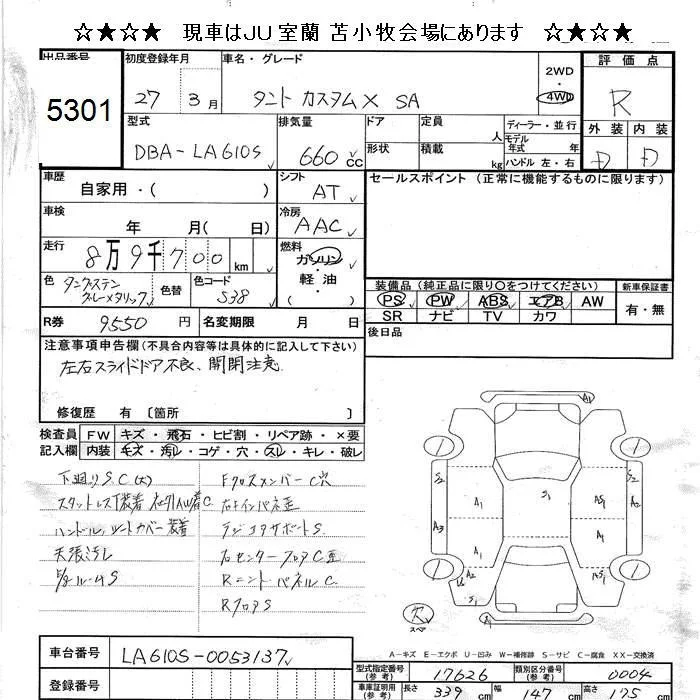 ☆★☆★ 現車はJU室蘭 苫小牧会場にあります ☆★☆★
出品番号 初度登録年月 車名・グレード 2WD・4WD 評価点
5301 27年 3月 タント カスタムX SA R
型式 排気量 ドア 定員 人 ディーラー・並行 外装 内装
DBA-LA610S 660cc 形状 積載 kg モデル年式 年 ハンドル 左・右 D D
車歴 自家用・( ) シフト AT セールスポイント(正常に機能するものに限ります)
車検 年 月( 日) 冷房 AAC
走行 8万9千700km 燃料 ガソリン・軽油
色 タングステングレーメタリック 色替 色コード S38
装備品(純正品に限り○をつけてください) 新車保証書
PS PW ABS エアB AW 有・無
SR ナビ TV カワ
R券 9550円 名変期限 月 日 後日品
注意事項申告欄(不具合内容等は具体的に記入して下さい)
左右スライドドア不良、開閉注意
修復歴 有 〔箇所 〕
検査員記入欄 FW キズ・飛石・ヒビ割・リペア跡・×要
内装 キズ・汚レ・コゲ・穴・スレ・キレ・破レ
下廻りS.C(大)
ハンドル、シートカバー装着
天張汚レ
FクロスメンバーC穴
ラジエタサポートS
RフロアS
A1
S2 A1 S1 AS1 S2
A3 A1 A1 A2
A2 AS1
欠
スペア
A1
A-キズ E-エクボ U-凹み W-補修跡 S-サビ C-腐食 XX-交換済
車台番号 LA610S-0053137
登録番号
型式指定番号(参考) 17626 類別区分番号(参考) 0004
車庫証明用(参考) 長さ 339cm 幅 147cm 高さ 175cm